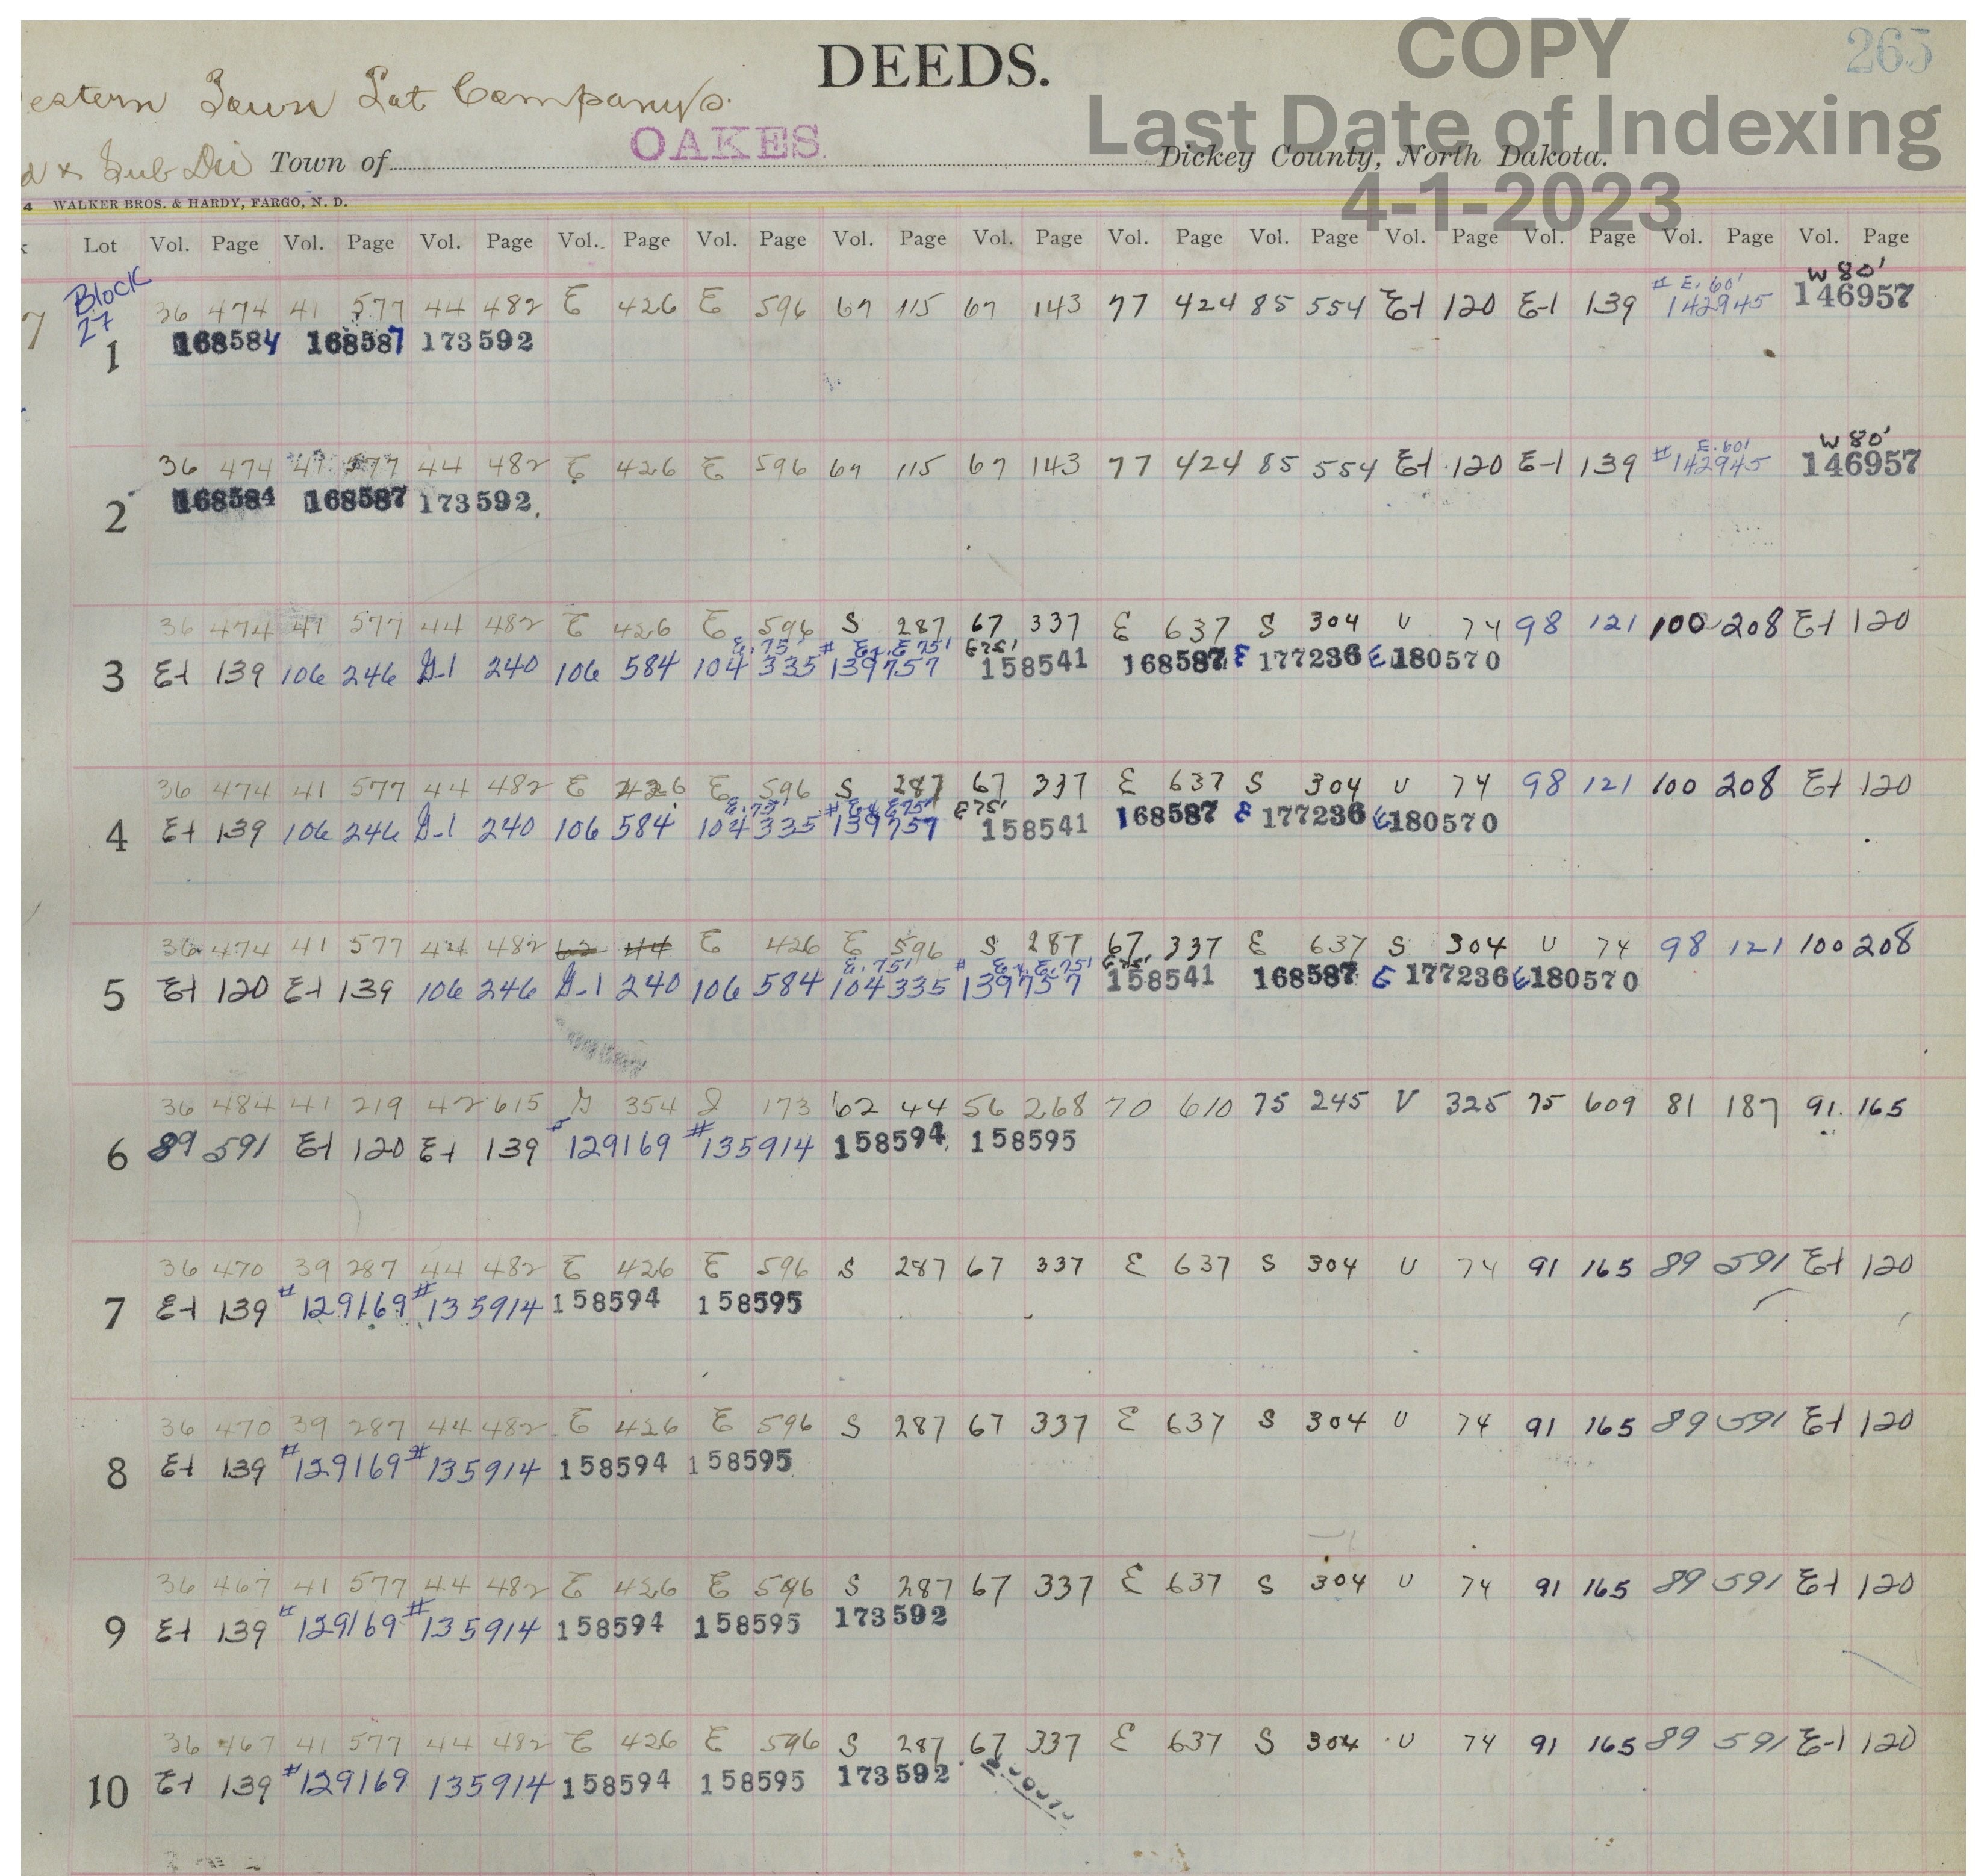 DEEDS.
COPY
265
estern Town Lot Company's
Last Date of Indexing
Sub Div Town of OAKES. Dickey County, North Dakota.
4-1-2023
4 WALKER BROS. & HARDY, FARGO, N. D.
Lot Vol. Page Vol. Page Vol. Page Vol. Page Vol. Page Vol. Page Vol. Page Vol. Page Vol. Page Vol. Page Vol. Page Vol. Page Vol. Page
Block 27
# E. 60' W 80'
7 36 474 41 577 44 482 E 426 E 596 67 115 67 143 77 424 85 554 E-1 120 E-1 139 142945 146957
1 168584 168587 173592
E. 60' W 80'
36 474 41 577 44 482 E 426 E 596 67 115 67 143 77 424 85 554 E-1 120 E-1 139 #142945 146957
2 168584 168587 173592
36 474 41 577 44 482 E 426 E 596 S 287 67 337 E 637 S 304 U 74 98 121 100 208 E-1 120
E. 75' # E. 75' E 75'
3 E-1 139 106 246 G-1 240 106 584 104 335 139757 158541 168587 E 177236 E 180570
36 474 41 577 44 482 E 426 E 596 S 287 67 337 E 637 S 304 U 74 98 121 100 208 E-1 120
E. 75' # E 75' E 75'
4 E-1 139 106 246 G-1 240 106 584 104 335 139757 158541 168587 E 177236 E 180570
36 474 41 577 44 482 62 44 E 426 E 596 S 287 67 337 E 637 S 304 U 74 98 121 100 208
E. 75' # E. 75' E 75'
5 E-1 120 E-1 139 106 246 G-1 240 106 584 104 335 139757 158541 168587 E 177236 E 180570
36 484 41 219 42 615 G 354 I 173 62 44 56 268 70 610 75 245 V 325 75 609 81 187 91 165
6 89 591 E-1 120 E-1 139 #129169 #135914 158594 158595
36 470 39 287 44 482 E 426 E 596 S 287 67 337 E 637 S 304 U 74 91 165 89 591 E-1 120
7 E-1 139 #129169 #135914 158594 158595
36 470 39 287 44 482 E 426 E 596 S 287 67 337 E 637 S 304 U 74 91 165 89 591 E-1 120
8 E-1 139 #129169 #135914 158594 158595
36 467 41 577 44 482 E 426 E 596 S 287 67 337 E 637 S 304 U 74 91 165 89 591 E-1 120
9 E-1 139 #129169 #135914 158594 158595 173592
36 467 41 577 44 482 E 426 E 596 S 287 67 337 E 637 S 304 U 74 91 165 89 591 E-1 120
10 E-1 139 #129169 135914 158594 158595 173592